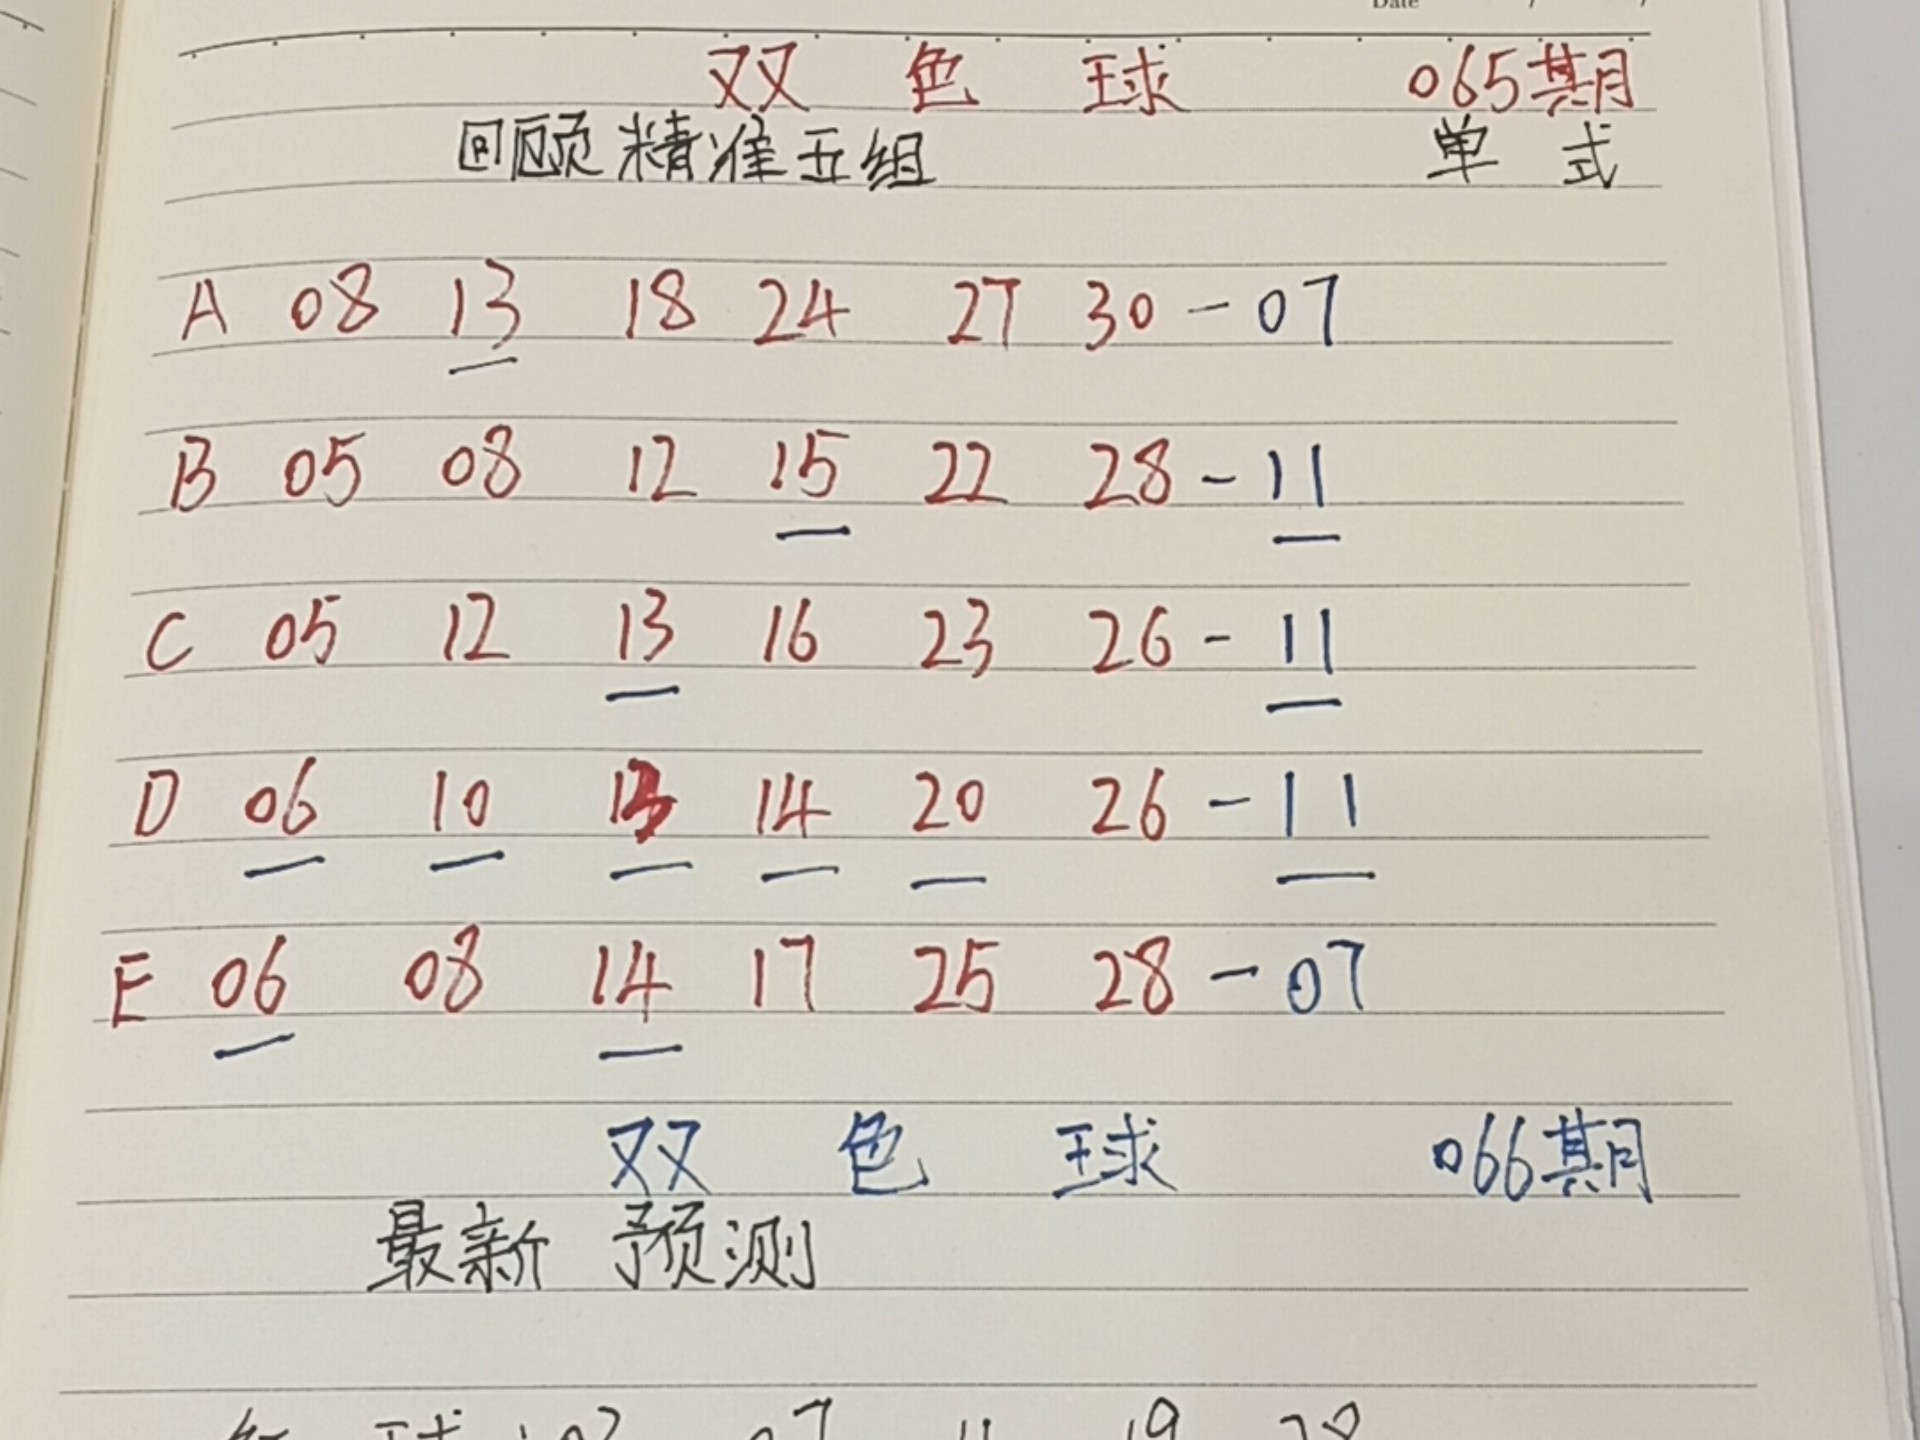 Date / /
双 色 球 065期
回顾精准五组 单 式
A 08 13 18 24 27 30 - 07
B 05 08 12 15 22 28 - 11
C 05 12 13 16 23 26 - 11
D 06 10 13 14 20 26 - 11
E 06 08 14 17 25 28 - 07
双 色 球 066期
最新 预测